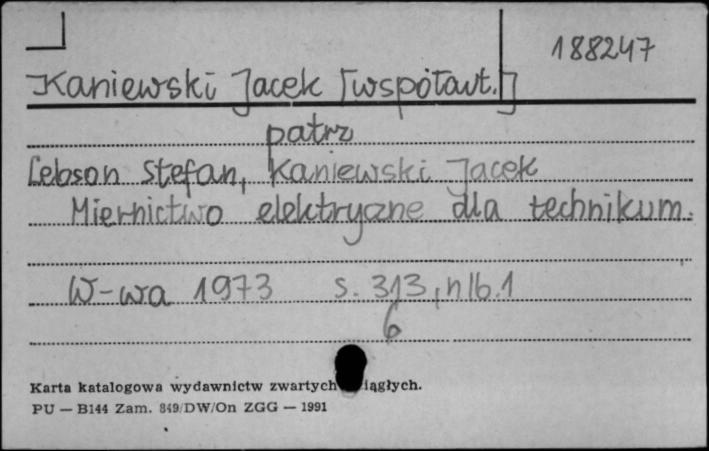 188247
Kaniewski Jacek [współaut.]
patrz
Lebson Stefan, Kaniewski Jacek
Miernictwo elektryczne dla technikum.
W-wa 1973 s. 313, nlb. 1
6
Karta katalogowa wydawnictw zwartych iągłych.
PU — B144 Zam. 849/DW/On ZGG — 1991